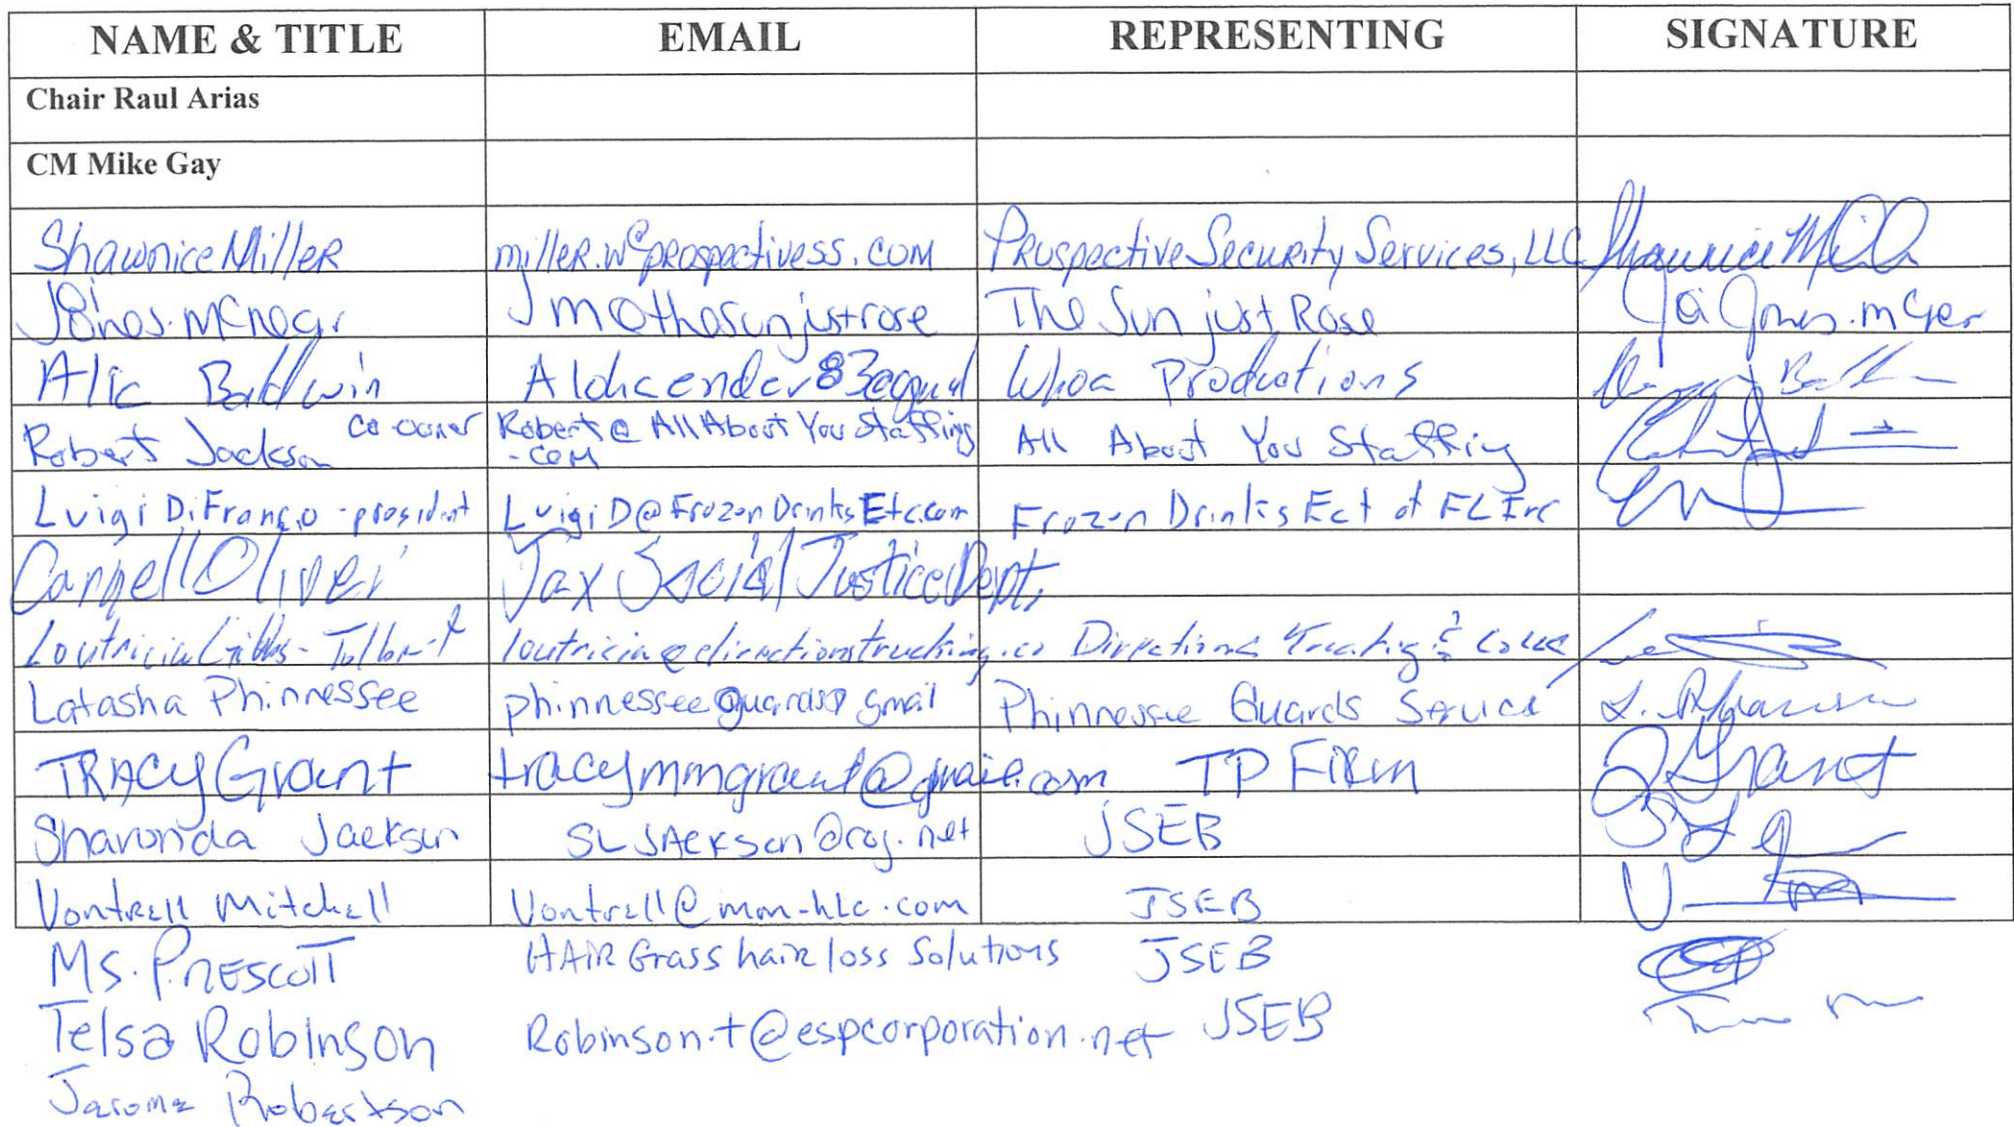 NAME & TITLE EMAIL REPRESENTING SIGNATURE
Chair Raul Arias
CM Mike Gay
Shawnice Miller miller.w@prospectivess.com Prospective Security Services, LLC Shawnice Mill
The Sun just Rose
Baldwin Whoa Productions
Robert Jackson co-owner Robert@AllAboutYouStaffing All About You Staffing
.com
Luigi DiFrancio - president LuigiD@FrozenDrinksEtc.com Frozen Drinks Ect of FL Inc
Oliver Jax Social Justice Dept.
Loutricia Gibbs-Tolbert
Latasha Phinnessee phinnesseeguards@gmail Phinnessee Guards Service
TRACY Grant tracymmgrant@gmail.com TP Firm Grant
Sharonda Jackson SLJackson@coj.net JSEB
Vontrell Mitchell Vontrell@mm-hlc.com JSEB
Ms. Prescott HAIR Grass hair loss Solutions JSEB
Telsa Robinson Robinson.t@espcorporation.net JSEB
Jarome Robertson